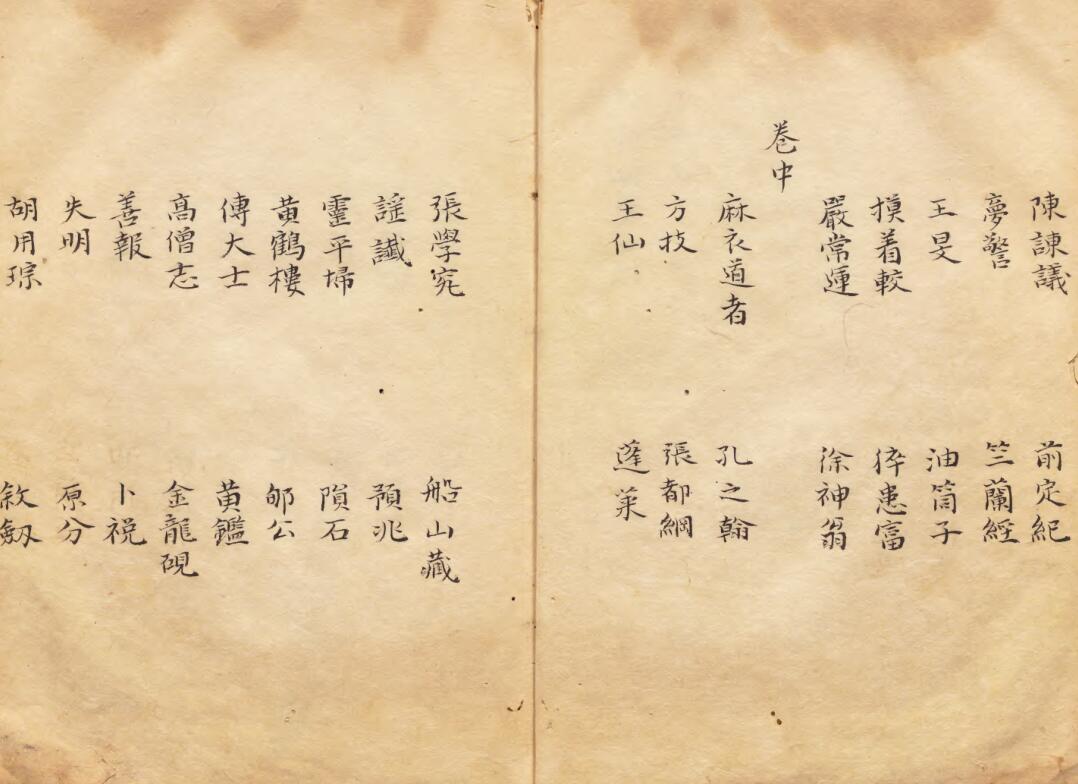 陳諌議 前定紀
夢警 竺蘭經
王旻 油筒子
摸着較 倅患富
嚴常運 徐神翁
卷中
麻衣道者 孔之翰
方技 張都綱
王仙 蓬萊
張學究 船山藏
謡讖 預兆
靈平埽 隕石
黄鶴樓 郇公
傅大士 黄鑑
高僧志 金龍硯
善報 卜祝
失明 原分
胡用琮 敘劔